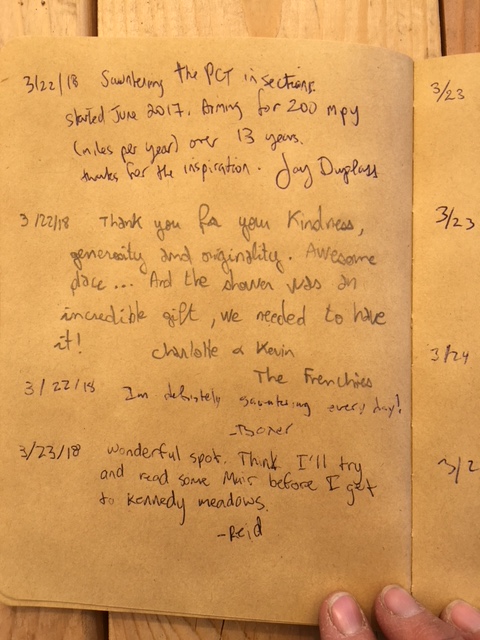 3/22/18 Sauntering the PCT in sections.
started June 2017. Aiming for 200 mpy
(miles per year) over 13 years.
thanks for the inspiration. Jay Duplass
3/22/18 Thank you for your Kindness,
generosity and originality. Awesome
place... And the shower was an
incredible gift, we needed to have
it! Charlotte & Kevin
The Frenchies
3/22/18 Im definitely sauntering every day!
3/23/18 wonderful spot. Think I'll try
and read some Muir before I get
to Kennedy meadows.
-Reid
3/23
3/23
3/24
3/2